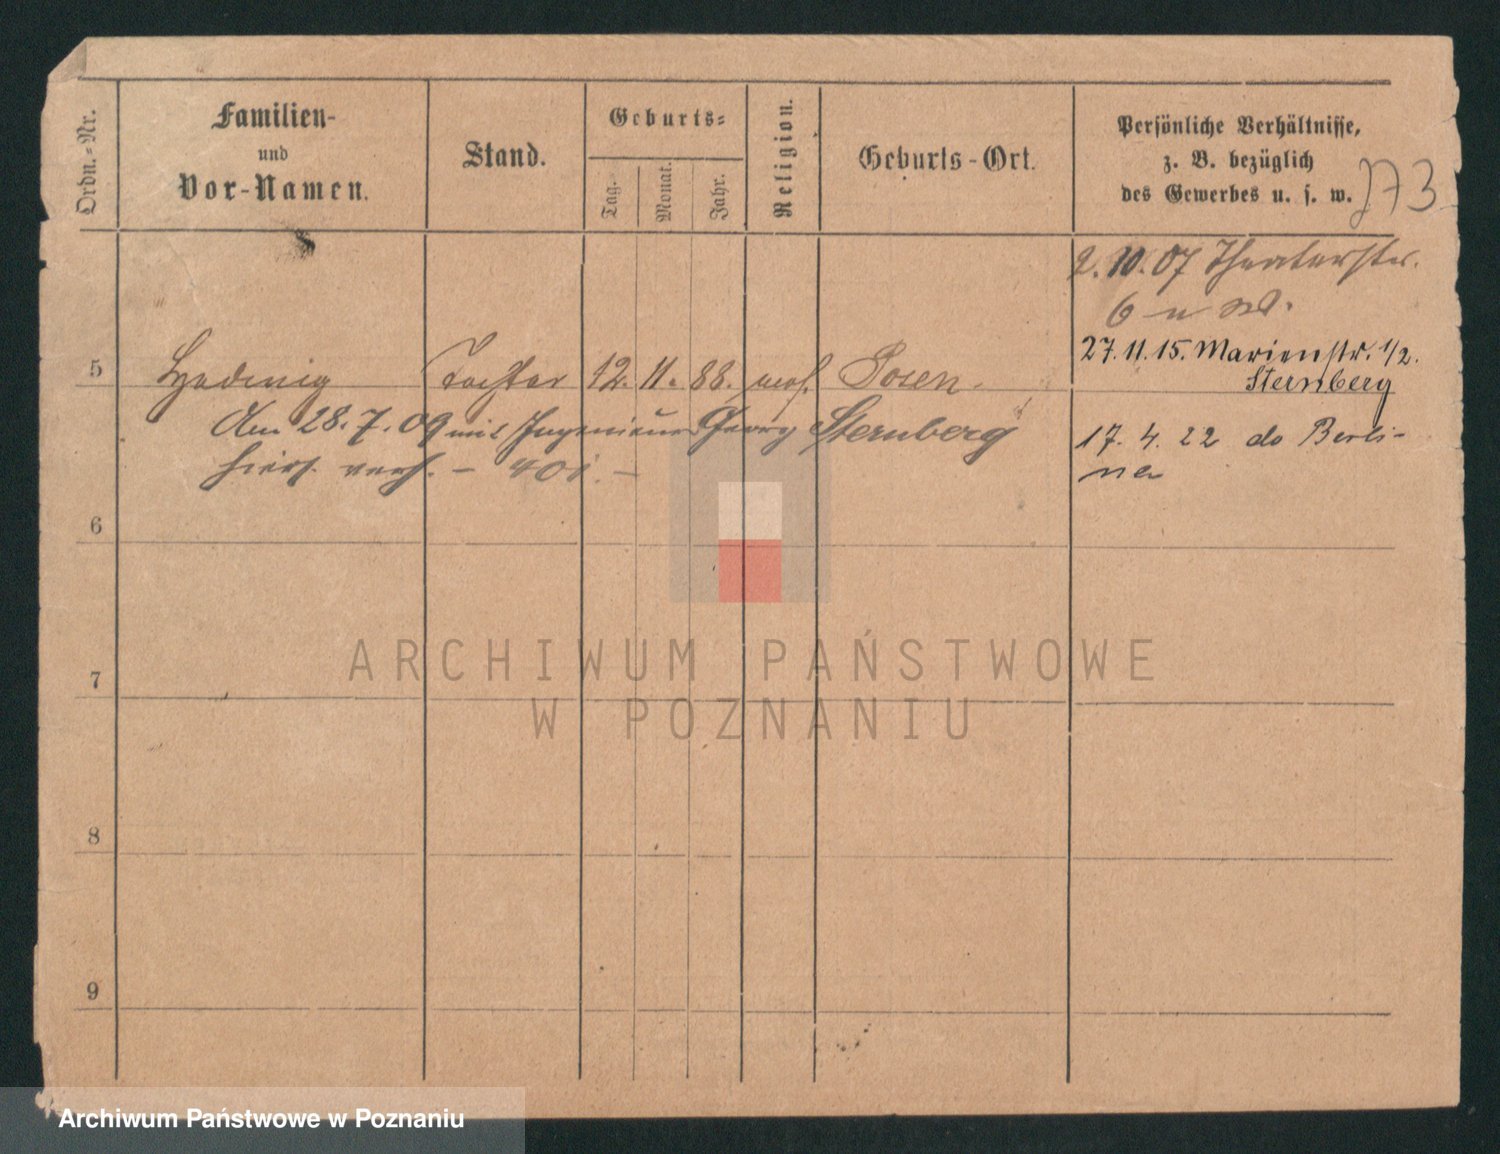 Ordn.-Nr.
Familien-
und
Vor-Namen.
Stand.
Geburts-
Tag.
Monat.
Jahr.
Religion.
Geburts-Ort.
Persönliche Verhältnisse,
z. B. bezüglich
des Gewerbes u. s. w.
173
2.10.07 Theaterstr.
6 n W.
5 Hedwig Tochter 12. 11. 88. mos. Posen.
27.11.15. Marienstr. 1/2.
Sternberg
Am 28.7.09 mit Ingenieur Georg Sternberg
hiers. verh. – 401. –
17. 4. 22 do Berli-
ner
6
7
8
9
ARCHIWUM PAŃSTWOWE
W POZNANIU
Archiwum Państwowe w Poznaniu